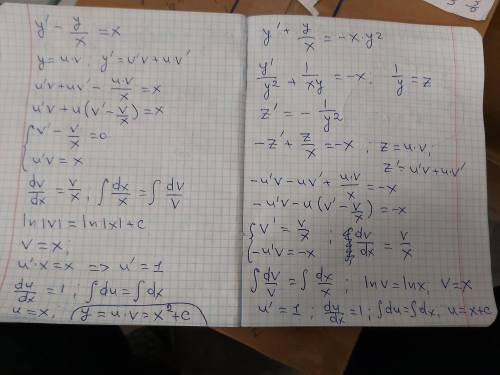 y' - y/x = x
y = u·v; y' = u'v + uv'
u'v + uv' - u·v/x = x
u'v + u(v' - v/x) = x
{ v' - v/x = 0
u'v = x
dv/dx = v/x, ∫ dx/x = ∫ dv/v
ln|v| = ln|x| + c
v = x,
u'·x = x => u' = 1
du/dx = 1; ∫du = ∫dx
u = x; y = u·v = x² + c
y' + y/x = -x·y²
y'/y² + 1/xy = -x. 1/y = z
z' = - 1/y²
-z' + z/x = -x ; z = u·v;
z' = u'v + u·v'
-u'v - uv' + u·v/x = -x
-u'v - u(v' - v/x) = -x
{ v' = v/x ; dv/dx = v/x
-u'v = -x
∫ dv/v = ∫ dx/x ; ln v = ln x, v = x
u' = 1 ; du/dx = 1; ∫du = ∫dx, u = x + c